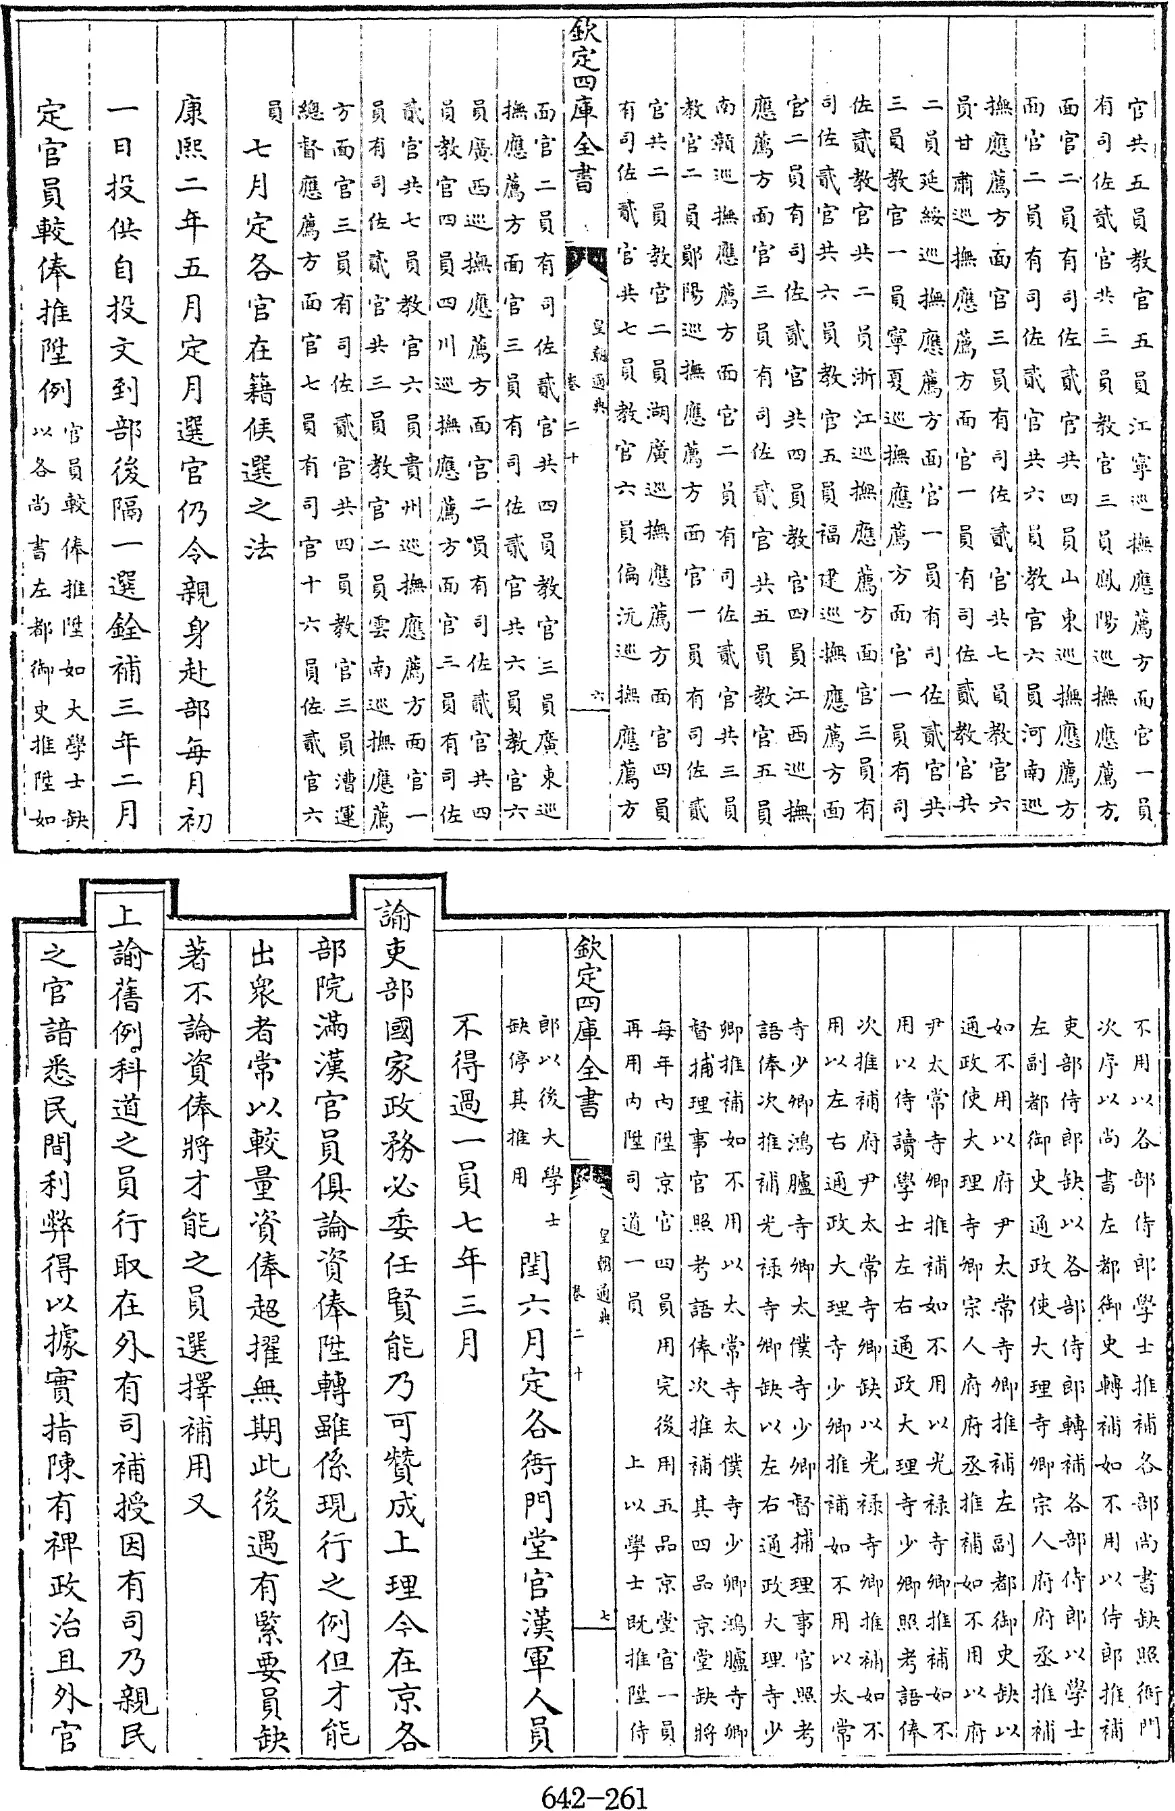 官共五員教官五員江寧巡撫應薦方面官一員
有司佐貳官共三員教官三員鳳陽巡撫應薦方
面官二員有司佐貳官共四員山東巡撫應薦方
面官二員有司佐貳官共六員教官六員河南巡
撫應薦方面官三員有司佐貳官共七員教官六
員甘肅巡撫應薦方面官一員有司佐貳教官共
二員延綏巡撫應薦方面官一員有司佐貳官共
三員教官一員寧夏巡撫應薦方面官一員有司
佐貳教官共二員浙江巡撫應薦方面官三員有
司佐貳官共六員教官五員福建巡撫應薦方面
官二員有司佐貳官共四員教官四員江西巡撫
應薦方面官三員有司佐貳官共五員教官五員
南贛巡撫應薦方面官二員有司佐貳官共三員
教官二員鄖陽巡撫應薦方面官一員有司佐貳
官共二員教官二員湖廣巡撫應薦方面官四員
有司佐貳官共七員教官六員偏沅巡撫應薦方
欽定四庫全書
皇朝通典
卷二十
六
面官二員有司佐貳官共四員教官三員廣東巡
撫應薦方面官三員有司佐貳官共六員教官六
員廣西巡撫應薦方面官二員有司佐貳官共四
員教官四員四川巡撫應薦方面官三員有司佐
貳官共七員教官六員貴州巡撫應薦方面官一
員有司佐貳官共三員教官二員雲南巡撫應薦
方面官三員有司佐貳官共四員教官三員漕運
總督應薦方面官七員有司官十六員佐貳官六
員
七月定各官在籍候選之法
康熙二年五月定月選官仍令親身赴部每月初
一日投供自投文到部後隔一選銓補三年二月
定官員較俸推陞例
官員較俸推陞如大學士缺
以各尚書左都御史推陞如
不用以各部侍郎學士推補各部尚書缺照衙門
次序以尚書左都御史轉補如不用以侍郎推補
吏部侍郎缺以各部侍郎轉補各部侍郎以學士
左副都御史通政使大理寺卿宗人府府丞推補
如不用以府尹太常寺卿推補左副都御史缺以
通政使大理寺卿宗人府府丞推補如不用以府
尹太常寺卿推補如不用以光禄寺卿推補如不
用以侍讀學士左右通政大理寺少卿照考語俸
次推補府尹太常寺卿缺以光禄寺卿推補如不
用以左右通政大理寺少卿推補如不用以太常
寺少卿鴻臚寺卿太僕寺少卿督捕理事官照考
語俸次推補光禄寺卿缺以左右通政大理寺少
卿推補如不用以太常寺太僕寺少卿鴻臚寺卿
督捕理事官照考語俸次推補其四品京堂缺將
每年内陞京官四員用完後用五品京堂官一員
再用内陞司道一員 上以學士既推陞侍
欽定四庫全書
皇朝通典
卷二十
七
郎以後大學士
缺停其推用
閏六月定各衙門堂官漢軍人員
不得過一員七年三月
諭吏部國家政務必委任賢能乃可贊成上理今在京各
部院滿漢官員俱論資俸陞轉雖係現行之例但才能
出衆者常以較量資俸超擢無期此後遇有緊要員缺
著不論資俸將才能之員選擇補用又
上諭舊例科道之員行取在外有司補授因有司乃親民
之官諳悉民間利弊得以據實指陳有裨政治且外官
642-261